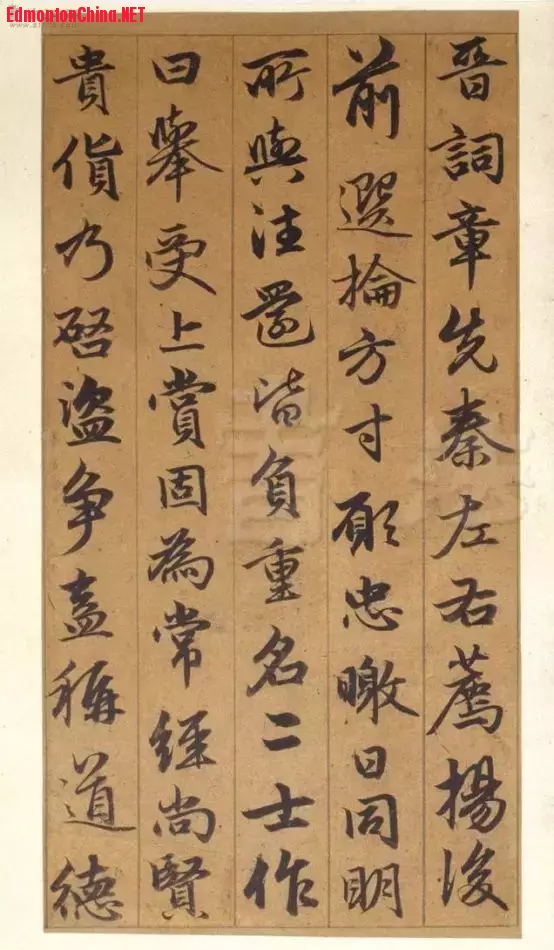 EdmontonChina.NET
晋詞章先秦左右薦揚後
前選掄方寸願忠瞰日同明
所與注還皆負重名二士作
日舉受上賞固為常經尚賢
貴貨乃啓盜爭盍稱道德